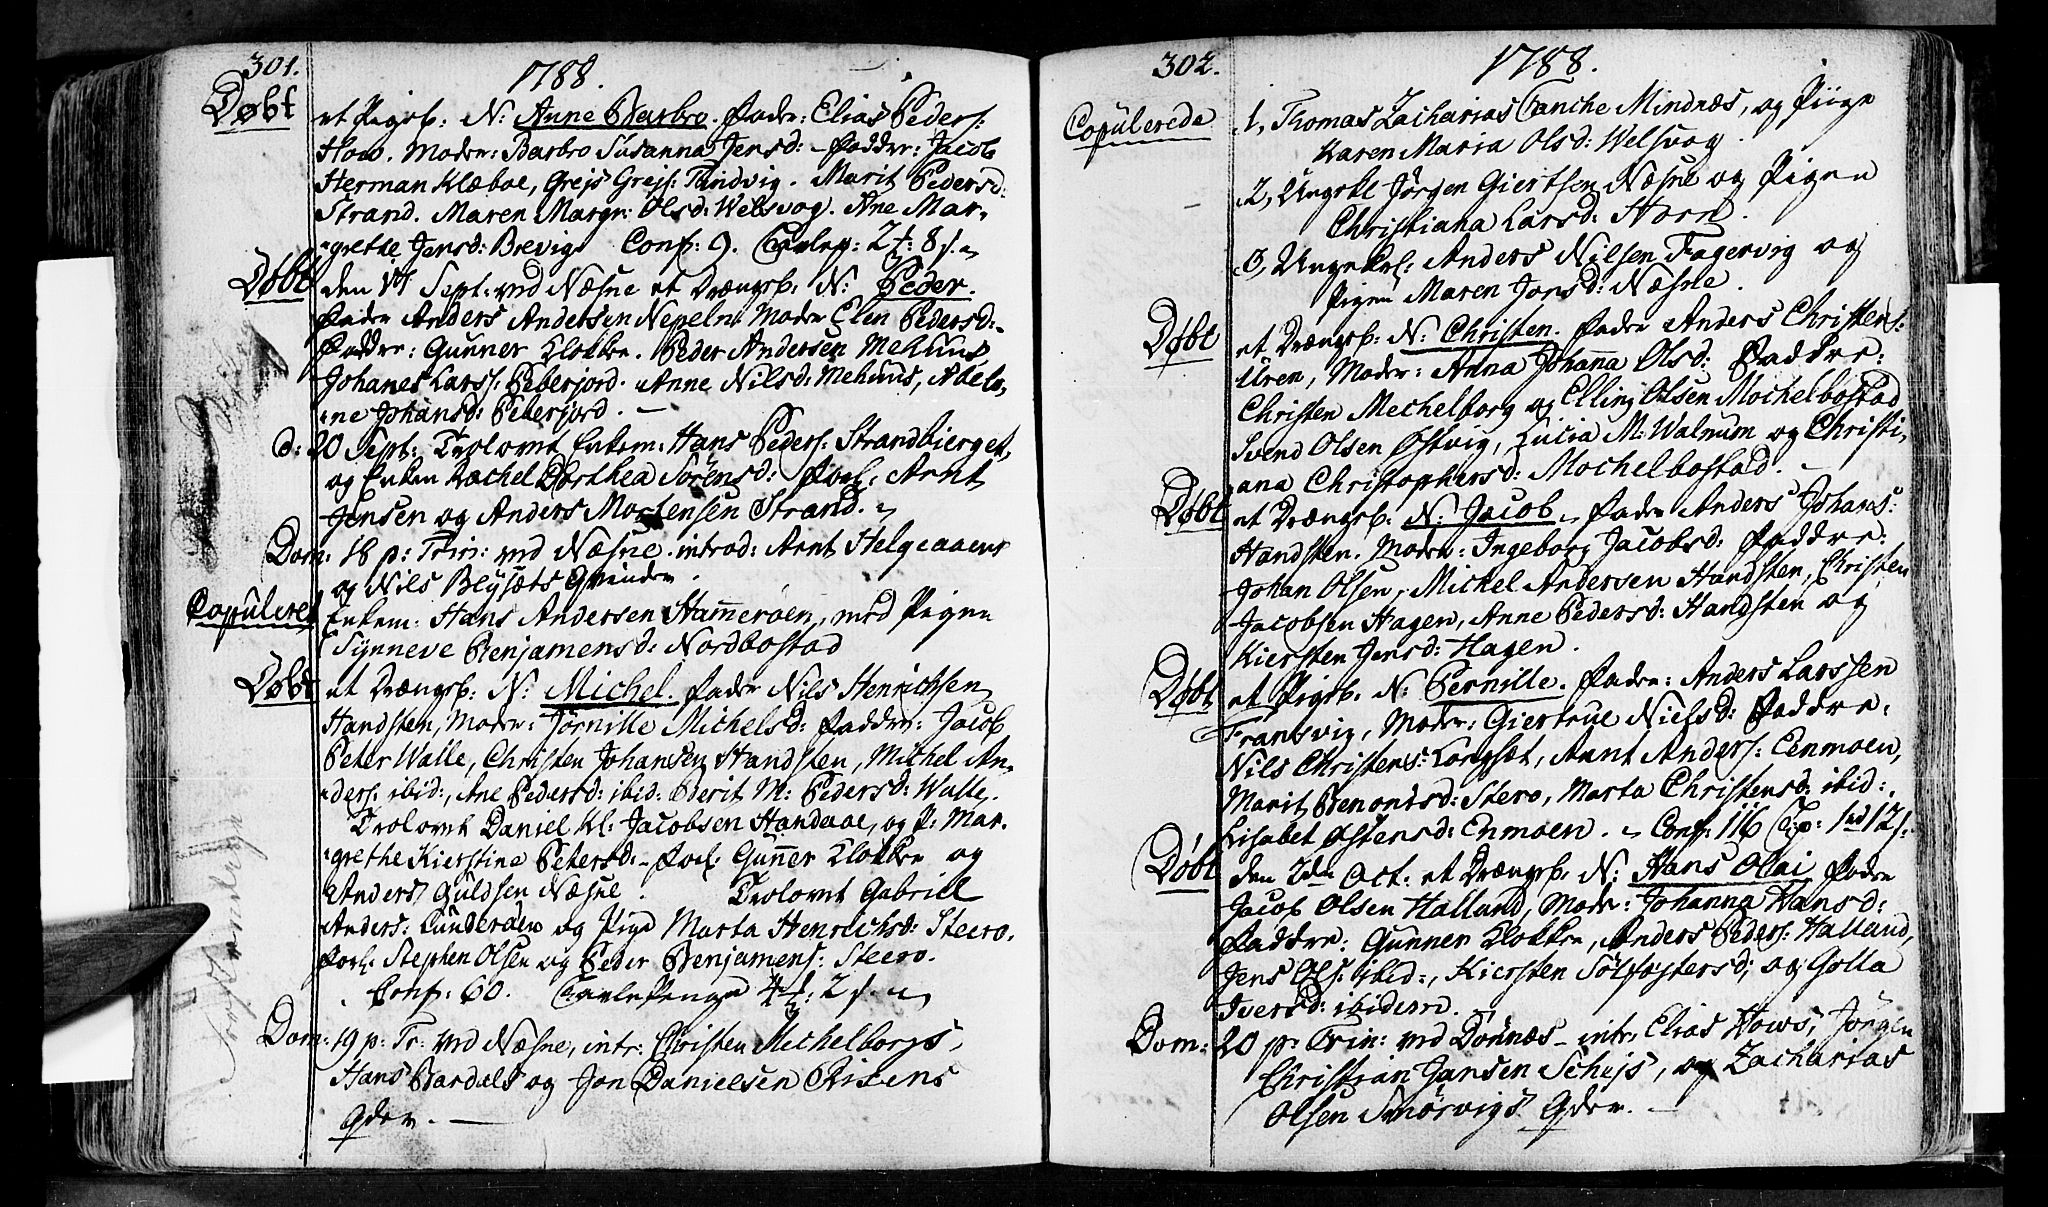 301.
1788.
Døbt
et Pigeb: N: Anne Barbro. Fader: Elias Peders:
How. Moder: Barbro Susanna Jensd: Faddre: Jacob
Herman Klæboe, Grejs Grejs: Marit Pedersd:
Strand. Maren Margr: Olsd: Welsvog. Ane Mar-
grethe Jensd: Brevig. Conf: 9. Tavlep: 2 8 s.
Døbt
den Sept: ved Næsne et Drængeb: N: Peder.
Fader Anders Andersen Nepeln Moder Elen Pedersd:
Faddre: Gunner Klokker. Peder Andersen Mehuus
Johanes Larss: Seberjord. Anne Nilsd: Mehuus, Abelo-
ne Johansd: Seberjord.
d: 20 Sept: Trolovet Enkem: Hans Peders: Strandbierget,
og Enken Rachel Dorthea Sörensd: Forl: Arnt
Jensen og Anders Mortensen Strand.
Dom: 18 p: Trin: ved Næsne introd: Arnt Helgeaaens
og Nils Blysæts Qvinder.
Copuleret
Enkem: Hans Andersen Hammerøen, med Pigen
Synneve Benjamensd: Nordbostad
Døbt
et Drængeb: N: Michel. Fader Nils Henrichsen
Handsten, Moder: Jörnille Michelsd: Faddre: Jacob
Peter Walle, Christen Johansen Handsten, Michel An-
ders: ibid:, Ane Pedersd: ibid: Berit M: Pedersd: Walle.
Trolovet Daniel Kl: Jacobsen Handaae, og P: Mar-
grethe Kierstine Petersd: Forl: Gunner Klokker og
Anders Guldsen Næsne. Trolovet Gabriel
Anders: Tunderøen og Pige Marta Henrichsd: Steero.
Forl: Stephen Olsen og Peder Benjamens: Steero.
Conf: 60. Tavlepenge 4 2 s.
Dom: 19 p: Tr: ved Næsne, intr: Christen Mechelborgs,
Hans Bardals og Jon Danielsen Risens
Qder.
302.
1788.
Copulerede
1, Thomas Zacharias Tanche Mindnæs, og Piige
Karen Maria Olsd: Welsvog.
2, Ungekl Jörgen Giertsen Næsne og Pigen
Christiana Larsd: Horn.
3, Ungekrl: Anders Nilsen Fagervig og
Pigen Maren Jensd: Næsne.
Døbt
et Drængeb: N: Christen. Fader Anders Christens:
Uren, Moder: Anna Johanna Olsd: Faddre:
Christen Mechelborg og Elling Olsen Mochelbostad
Svend Olsen Østvig, Lucia M: Walnum og Christi-
ana Christophersd: Mochelbostad.
Døbt
et Drængeb: N: Jacob. Fader Anders Johans:
Handsten. Moder: Ingeborg Jacobsd: Faddre:
Johan Olsen, Michel Andersen Handsten, Christen
Jacobsen Hagen, Anne Pedersd: Handsten og
Kiersten Jensd: Hagen.
Døbt
et Pigeb: N: Pernille. Fader: Anders Larssen
Transvig, Moder: Giertrue Nielsd: Faddre:
Nils Christens: Langsæt, Arnt Anders: Eenmoen,
Marit Benontsd: Stero, Marta Christensd: ibid:,
Lisabet Østensd: Enmoen. Conf: 116 Tp: 1 12 s.
Døbt
den 2den Oct: et Drængeb: N: Hans Olai Fader
Jacob Olsen Halland, Moder: Johanna Hansd:
Faddre: Gunner Klokker, Anders Peders: Halland,
Jens Ols: ibid:, Kiersten Sölfastersd: og Golla
Iversd: ibidem.
Dom: 20 p: Trin: ved Dönnæs intr: Elias Hows, Jörgen
Christian Jansen Schejs, og Zacharias
Olsen Smörvigs Qder.